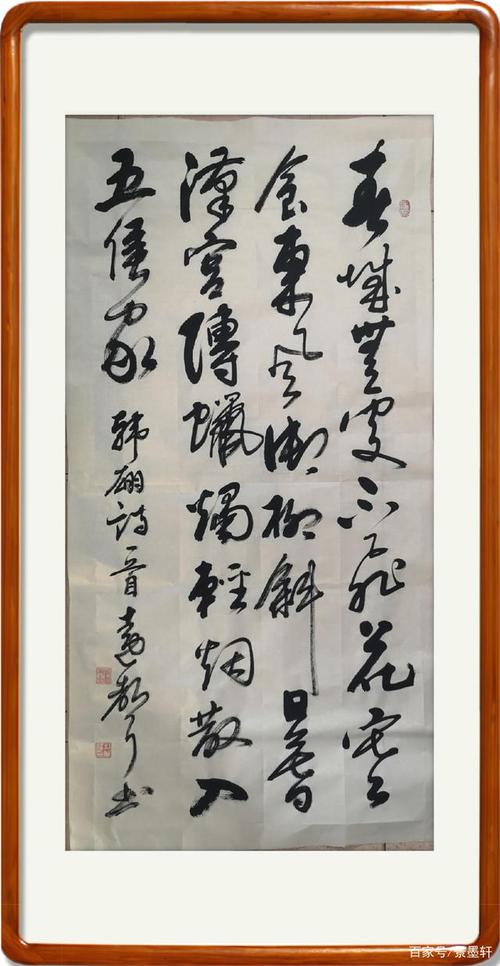 春城無處不飛花寒
食東風御柳斜日暮
漢宮傳蠟燭輕烟散入
五侯家 韓翃詩一首 書
百家号/景墨轩